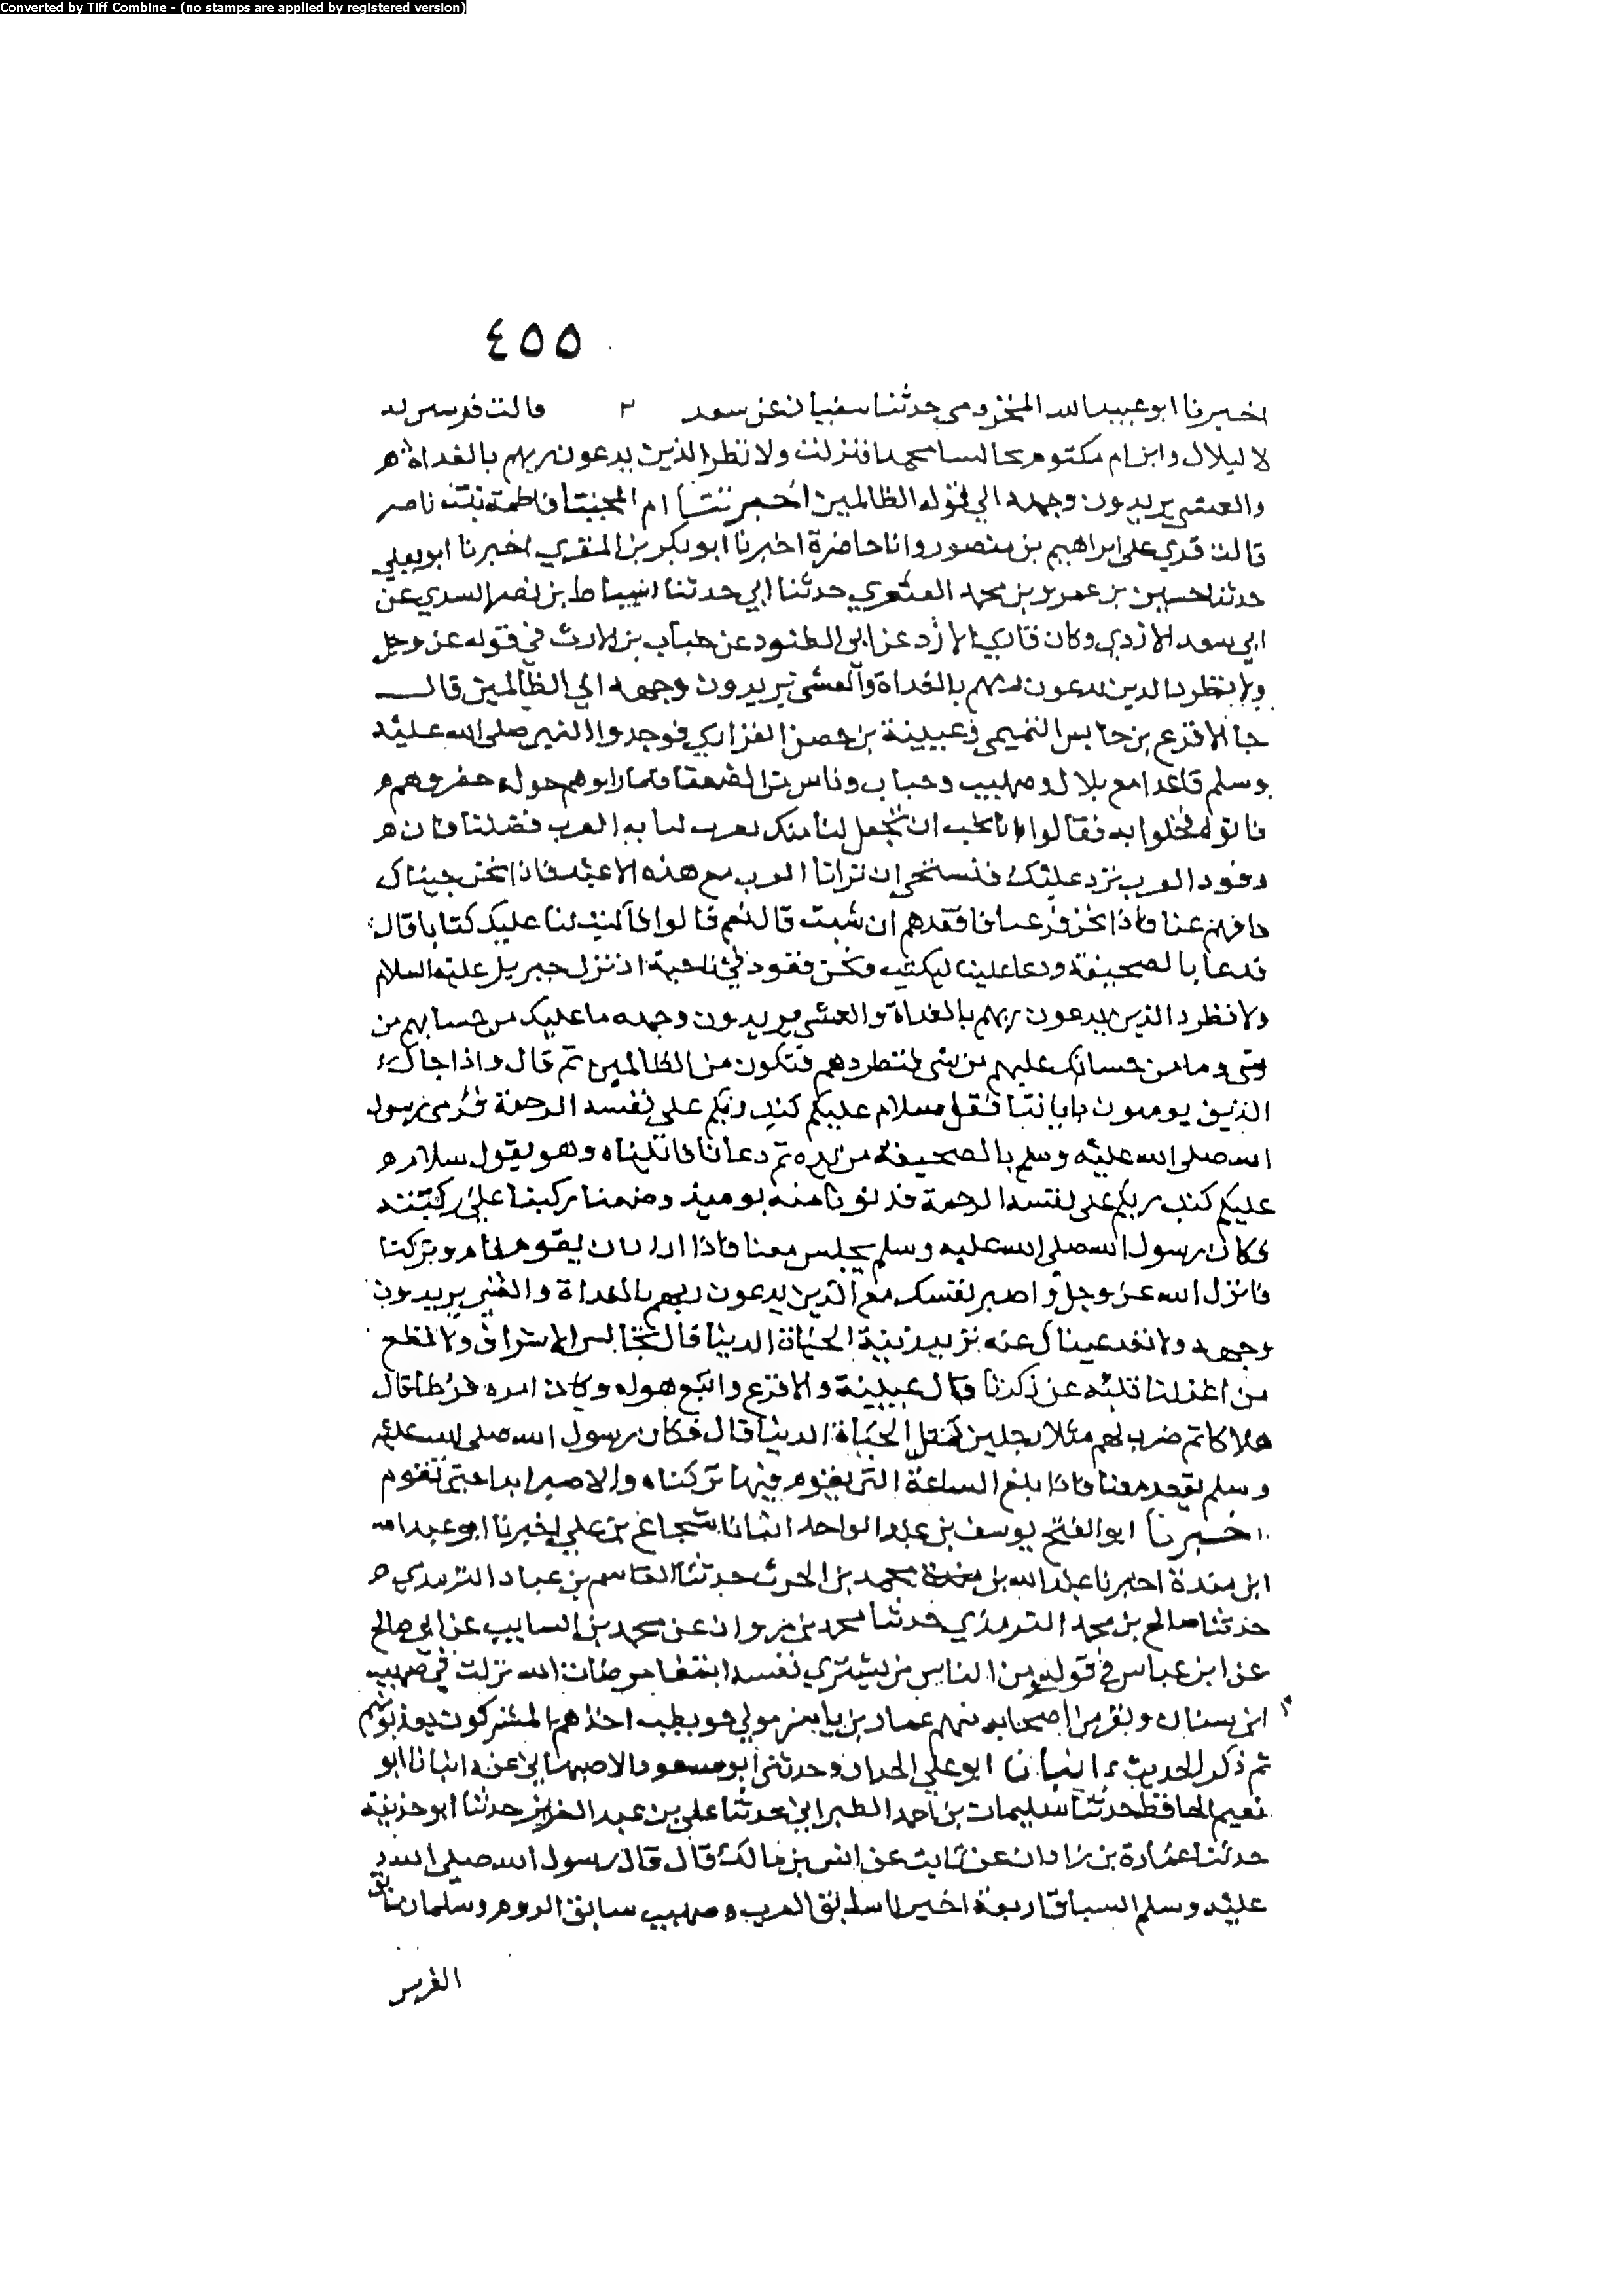 Converted by Tiff Combine - (no stamps are applied by registered version)
٤٥٥
اخبرنا ابو عبيد الله المخزومي حدثنا سفيان عن سعد ٢ قالت قريش
لا لبلال وابن ام مكتوم محمدا فنزلت ولا تطرد الذين يدعون ربهم بالغداة ه
والعشي يريدون وجهه الي قوله الظالمين اخبرتنا ام المجتبا فاطمة بنت ناصر
قالت قري على ابراهيم بن منصور وانا حاضرة اخبرنا ابو بكر بن المقري اخبرنا ابو يعلي
حدثنا حسين بن عمرو بن محمد العنقري حدثنا ابي حدثنا اسباط بن نصر السدي عن
ابي سعد الازدي وكان قاري الازد عن ابي الكنود عن خباب بن الارت في قوله عز وجل
ولا تطرد الذين يدعون ربهم بالغداة والعشي يريدون وجهه الي الظالمين قال
جا الاقرع بن حابس التميمي وعيينة بن حصن الفزاري فوجدوا النبي صلى الله عليه
وسلم قاعدا مع بلال وصهيب وخباب وناس من الضعفا فلما راوهم حوله حقروهم ه
فاتوه فخلوا به فقالوا انا نحب ان تجعل لنا منك به العرب فضلنا فان ه
وفود العرب ترد عليك فنستحي ان ترانا العرب مع هذه الاعبد فاذا نحن جيناك
فاقمهم عنا فاذا نحن فرغنا فاقعدهم ان شيت قال نعم قالوا فاكتب لنا عليك كتابا قال
فدعا بالصحيفة ودعا عليا ليكتب ونحن قعود في ناحية اذ نزل جبريل عليه السلام
ولا تطرد الذين يدعون ربهم بالغداة والعشي يريدون وجهه ما عليك من حسابهم من
شي وما من حسابك عليهم من شي فتطردهم فتكون من الظالمين ثم قال واذا جاك
الذين يومنون باياتنا فقل سلام عليكم كتب ربكم على نفسه الرحمة فرمى رسول
الله صلى الله عليه وسلم بالصحيفة من يده ثم دعانا فاتيناه وهو يقول سلام ه
عليكم كتب ربكم على نفسه الرحمة فدنونا منه يوميذ وضعنا ركبنا على ركبته
فكان رسول الله صلى الله عليه وسلم يجلس معنا فاذا اراد ان يقوم قام وتركنا
فانزل الله عز وجل واصبر نفسك مع الذين يدعون ربهم بالغداة والعشي يريدون
وجهه ولا تعد عيناك عنه تريد زينة الحياة الدنيا قال تجالس الاشراف ولا تطع
من اغفلنا قلبه عن ذكرنا قال عيينة والاقرع واتبع هوله وكان امره فرطا قال
هلاكا ثم ضرب لهم مثلا رجلين كمثل الحياة الدنيا قال فكان رسول الله صلى الله عليه
وسلم يقعد معنا فاذا بلغ الساعة التي يقوم فيها تركناه والا صبر ابدا حتى نقوم
اخبرنا ابو الفتح يوسف بن عبد الواحد انبانا شجاع بن علي اخبرنا ابو عبد الله
ابن مندة اخبرنا عبد الله بن محمد بن الحرث حدثنا القاسم بن عباد الترمذي ه
حدثنا صالح بن محمد الترمذي حدثنا محمد بن مروان عن محمد بن السايب عن ابي صالح
عن ابن عباس في قوله من الناس من يشتري نفسه ابتغا مرضات الله نزلت في صهيب
ابن سنان ونفر من اصحابه منهم عمار بن ياسر مولي حويطب اخذهم المشركون يعذبونهم
ثم ذكر الحديث انبانا ابو علي الحداد وحدثني ابو مسعود الاصبهاني عنه انبانا ابو
نعيم الحافظ حدثنا سليمان بن احمد الطبراني حدثنا علي بن عبد العزيز حدثنا ابو حذيفة
حدثنا عمارة بن زاذان عن ثابت عن انس بن مالك قال قال رسول الله صلى الله
عليه وسلم السباق اربعة سابق العرب وصهيب سابق الروم وسلمان سابق
الفرس